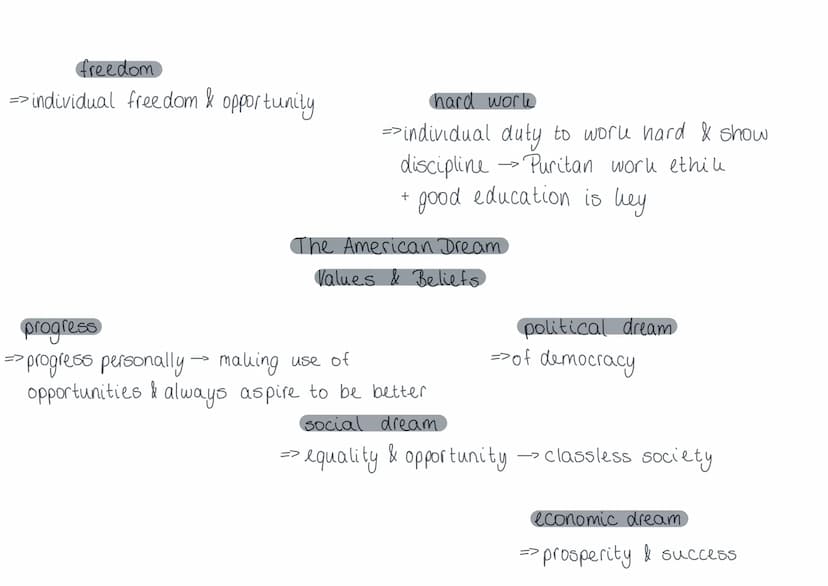 freedom
=> individual freedom & opportunity
hard work
=> individual duty to work hard & show
discipline → Puritan work ethik
+ good education is key
The American Dream
Values & Beliefs
progress
=> progress personally → making use of
opportunities & always aspire to be better
political dream
=> of democracy
social dream
=> equality & opportunity → classless society
economic dream
=> prosperity & success